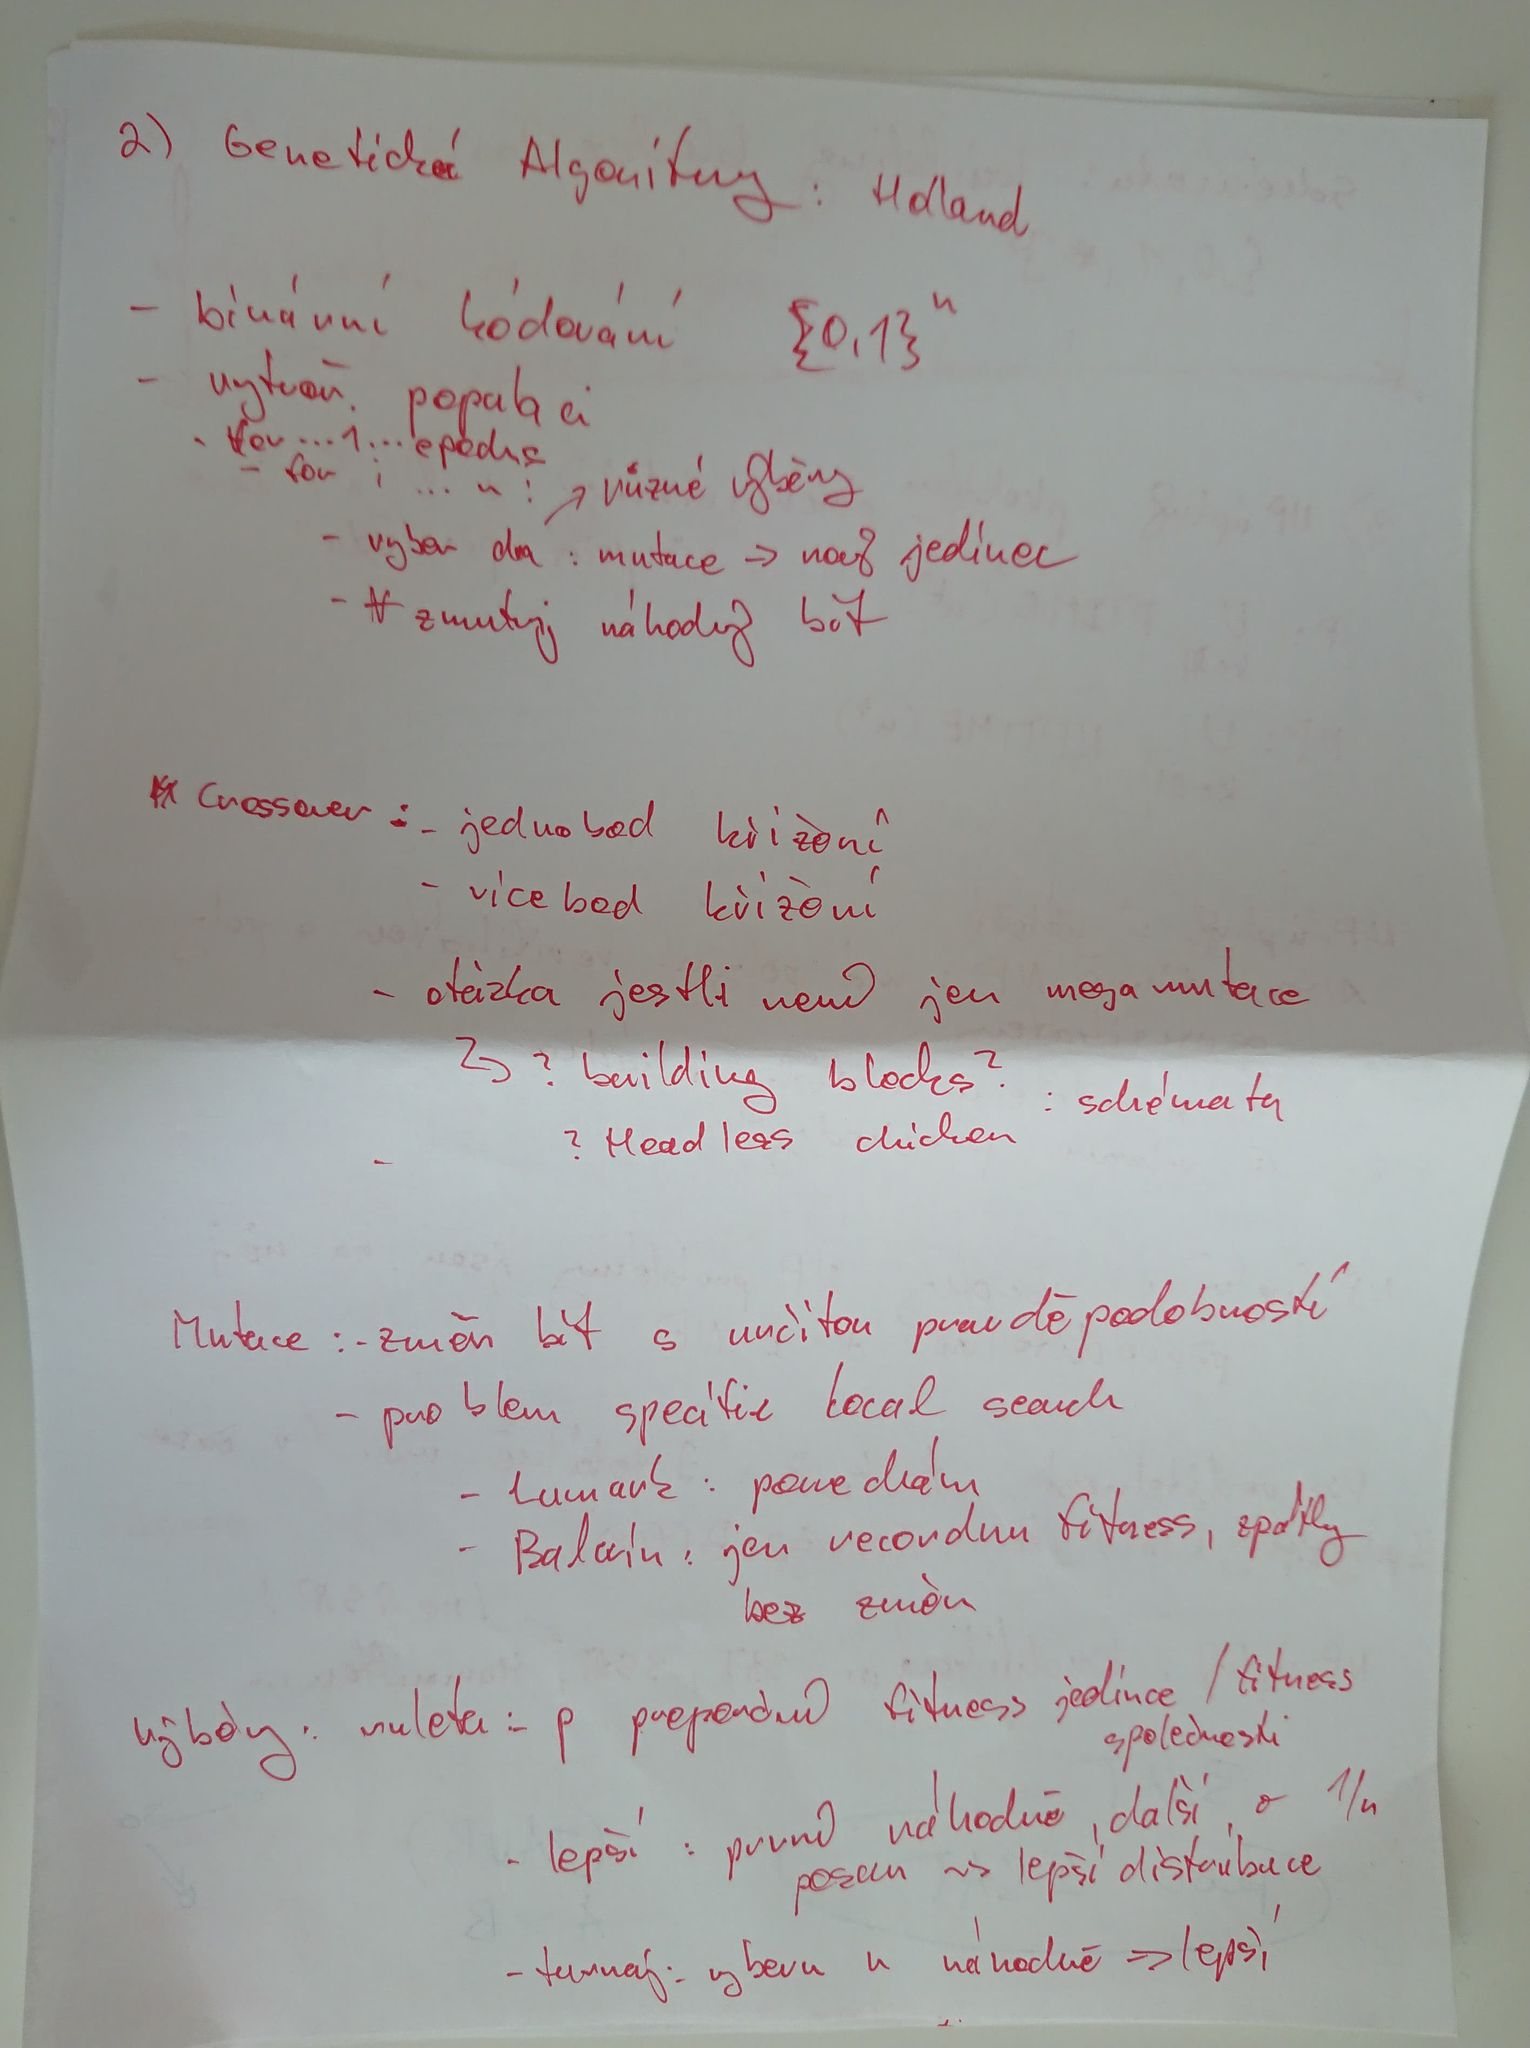 2) Genetické Algoritmy : Holland
- binární kódování {0,1}^n
- vytvoř. populaci
- for ... 1 ... epochs
- for i ... n : → různé výběry
- vyber dva : mutace => nový jedinec
- ∀ zmutuj náhodný bit
Crossover : - jednobod křížení
- vícebod křížení
- otázka jestli není jen megamutace
↳ ? building blocks?
: schémata
- ? Headless chicken
Mutace : - změň bit s určitou pravděpodobností
- problem specific local search
- Lamark : ponechám
- Balwin : jen recordnu fitness, zpátky
bez změn
výběry : ruleta : - p proporčně fitness jedince / fitness
společnosti
- lepší : první náhodně, další o 1/n
posun ~> lepší distribuce
- turnaj : - vyberu n náhodně => lepší